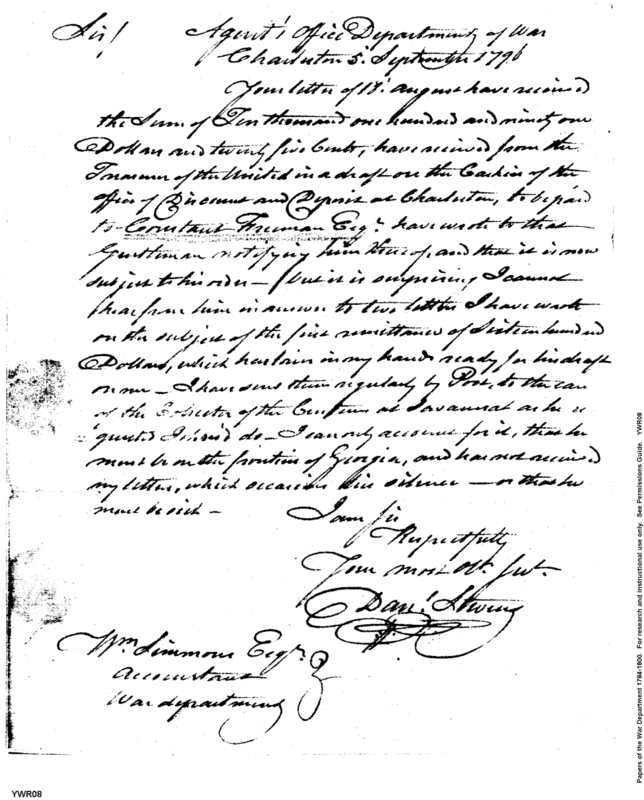 Sir! Agent's Office Department of War
Charleston 5. September 1796
Your letter of 18t. August have received
the Sum of Ten thousand one hundred and ninety one
Dollars and twenty five Cents, have received from the
Treasurer of the United in a draft on the Cashier of the
Office of Discount and Deposit at Charleston, to be paid
to Constant Freeman Esqr. have wrote to that
Gentleman notifying him thereof, and that it is now
subject to his order — but it is surprising I cannot
hear from him in answer to two letters I have wrote
on the subject of the first remittance of Sixteen hundred
Dollars, which has lain in my hands ready for his draft
on me — I have sent them regularly by Post, to the care
of the Collector of the Customs at Savannah as he re
quested I should do — I can only account for it, that he
must be on the frontiers of Georgia, and has not received
my letters, which occasions his silence — or that he
must be sick —
I am Sir
Respectfully
Your most Obt. Servt.
Danl. Stevens
Wm Simmons Esqr.
Accountant
War department
YWR08
Papers of the War Department 1784-1800. For research and instructional use only. See Permissions Guide. YWR08